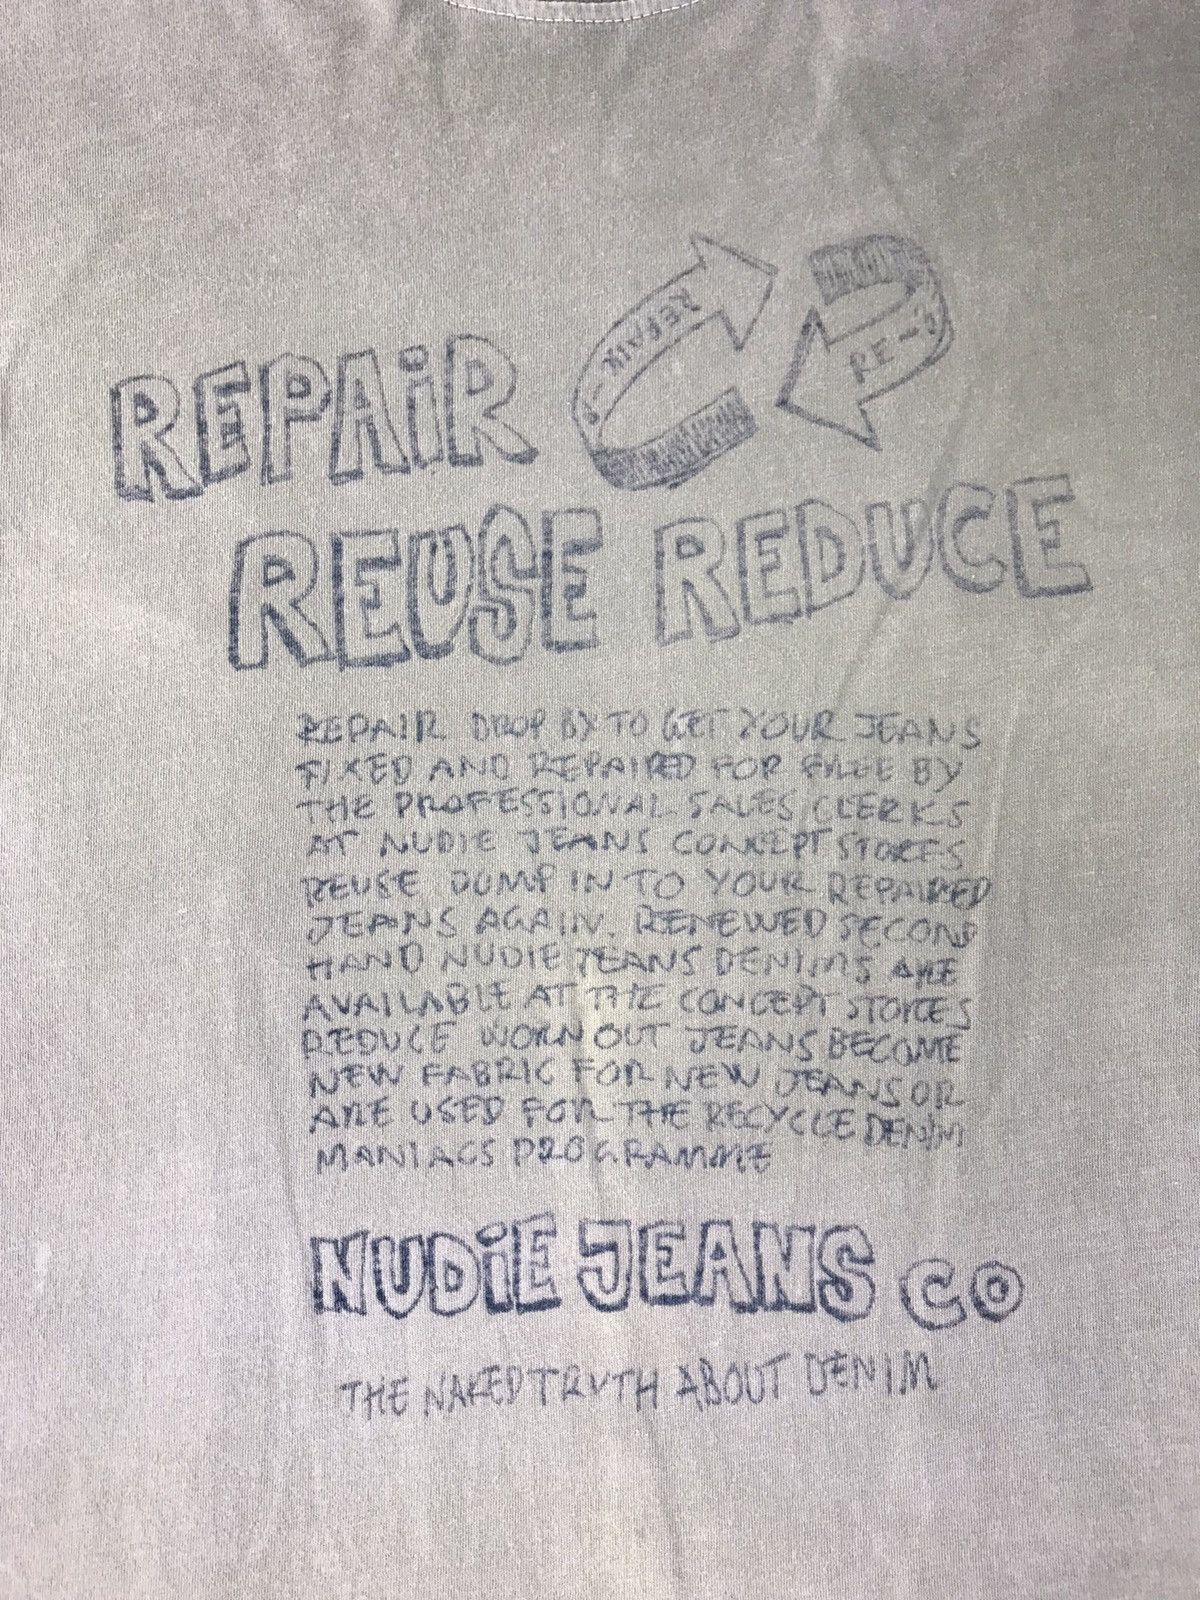 REPAIR
REPAIR
RE-
REUSE REDUCE
REPAIR DROP BY TO GET YOUR JEANS
FIXED AND REPAIRED FOR FREE BY
THE PROFESSIONAL SALES CLERKS
AT NUDIE JEANS CONCEPT STORES
REUSE JUMP IN TO YOUR REPAIRED
JEANS AGAIN. RENEWED SECOND
HAND NUDIE JEANS DENIMS ARE
AVAILABLE AT THE CONCEPT STORES
REDUCE WORN OUT JEANS BECOME
NEW FABRIC FOR NEW JEANS OR
ARE USED FOR THE RECYCLE DENIM
MANIACS PROGRAMME
NUDiE JEANS CO
THE NAKED TRUTH ABOUT DENIM